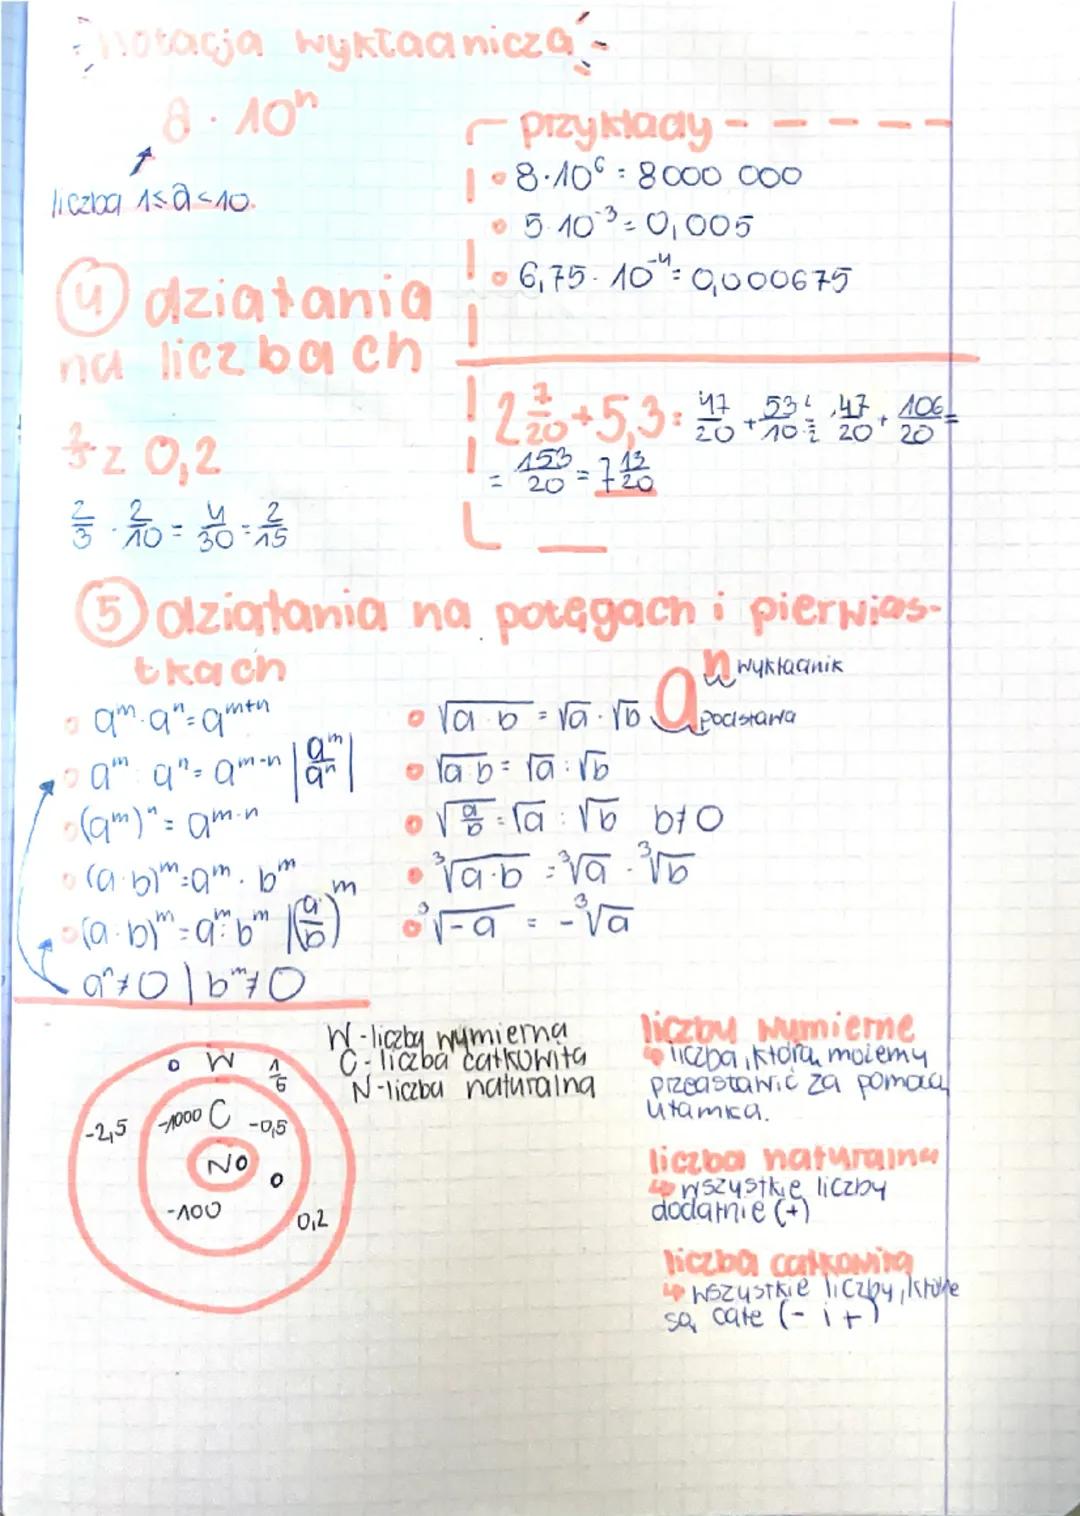 notacja wykładnicza
a · 10ⁿ
liczba 1≤a<10.
przykłady
8·10⁶ = 8000 000
5·10⁻³ = 0,005
6,75·10⁻⁴ = 0,000675
④ działania
na liczbach
2/3 z 0,2
2/3 · 2/10 = 4/30 = 2/15
2 7/20 + 5,3 = 47/20 + 53/10 = 47/20 + 106/20 =
= 153/20 = 7 13/20
⑤ działania na potęgach i pierwias-
tkach
aⁿ wykładnik
podstawa
aᵐ·aⁿ = aᵐ⁺ⁿ
aᵐ : aⁿ = aᵐ⁻ⁿ | aᵐ/aⁿ |
(aᵐ)ⁿ = aᵐ·ⁿ
(a·b)ᵐ = aᵐ · bᵐ
(a·b)ᵐ = aᵐ : bᵐ |(a/b)ᵐ
aⁿ≠0 | bᵐ≠0
√a·b = √a · √b
√a:b = √a : √b
√a/b = √a : √b b≠0
³√a·b = ³√a · ³√b
³√-a = -³√a
W - liczba wymierna
C - liczba całkowita
N - liczba naturalna
0 W 1/6
-2,5 -1000 C -0,5
N0 0
-100 0,2
liczby wymierne
↳ liczba, którą możemy
przedstawić za pomocą
ułamka.
liczba naturalna
↳ wszystkie liczby
dodatnie (+)
liczba całkowita
↳ wszystkie liczby, które
są całe (- i +)